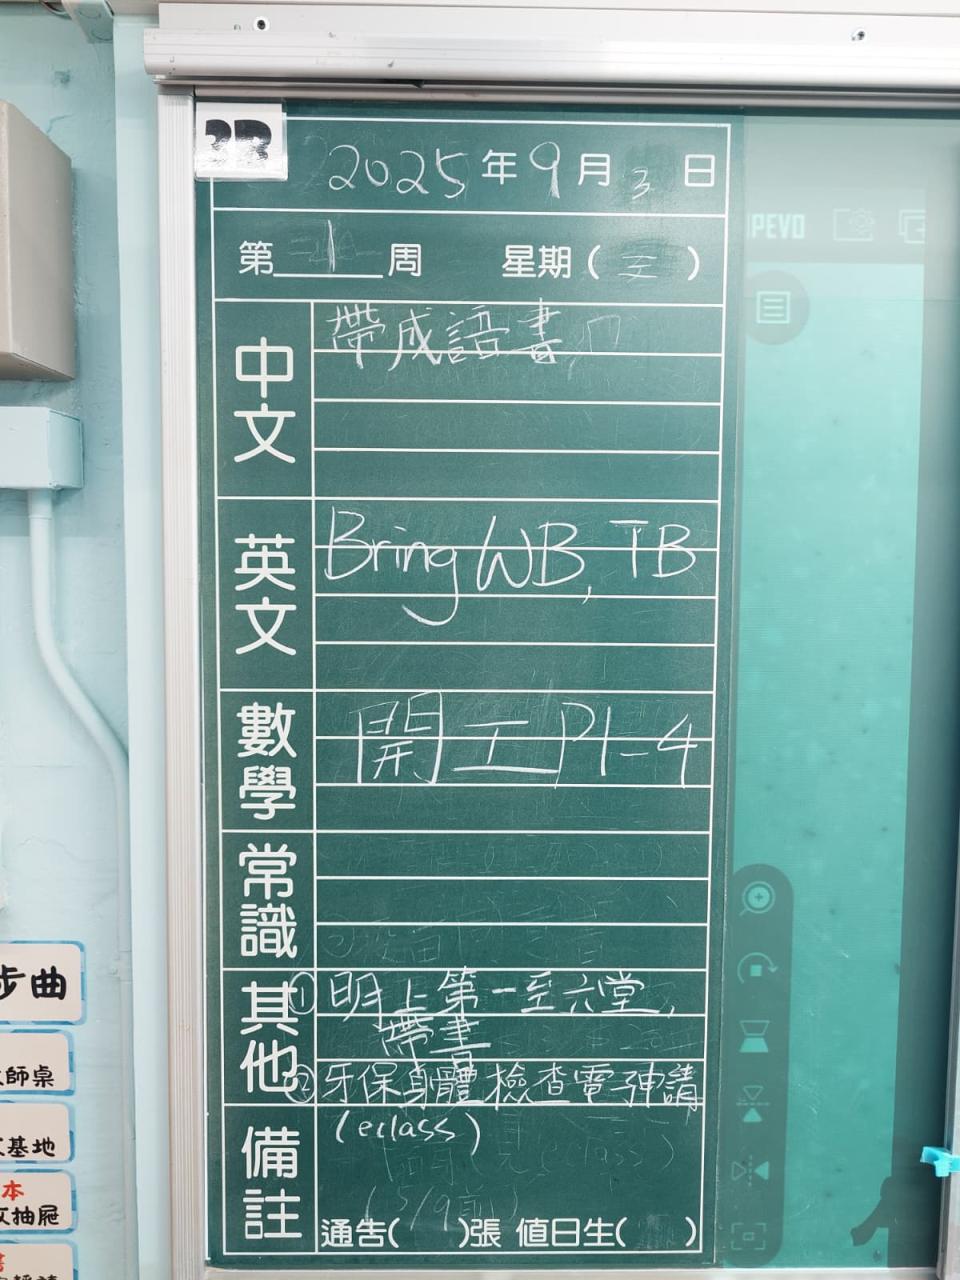 3B
2025年9月3日
第1周 星期(三)
中文
帶成語書
英文
Bring WB, TB
數學
開工 P1-4
常識
其他
①明上第一至六堂,
帶書
②牙保身體檢查電
(eclass)
(見eclass)
(5/9前)
備註
通告( )張 值日生( )
IPEVO
步曲
師桌
基地
本
抽屜